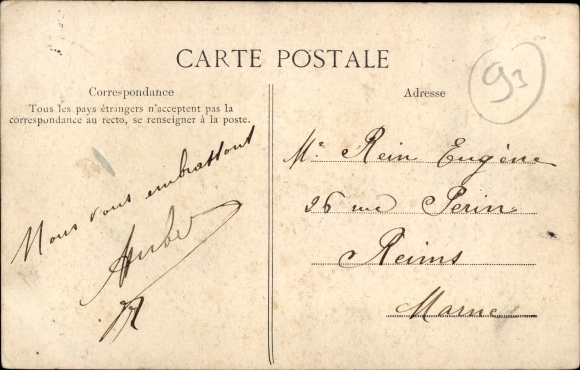 CARTE POSTALE
93
Correspondance
Tous les pays étrangers n'acceptent pas la
correspondance au recto, se renseigner à la poste.
Nous vous embrassons
Adresse
Mr Rein Eugène
26 rue Perin
Reims
Marne